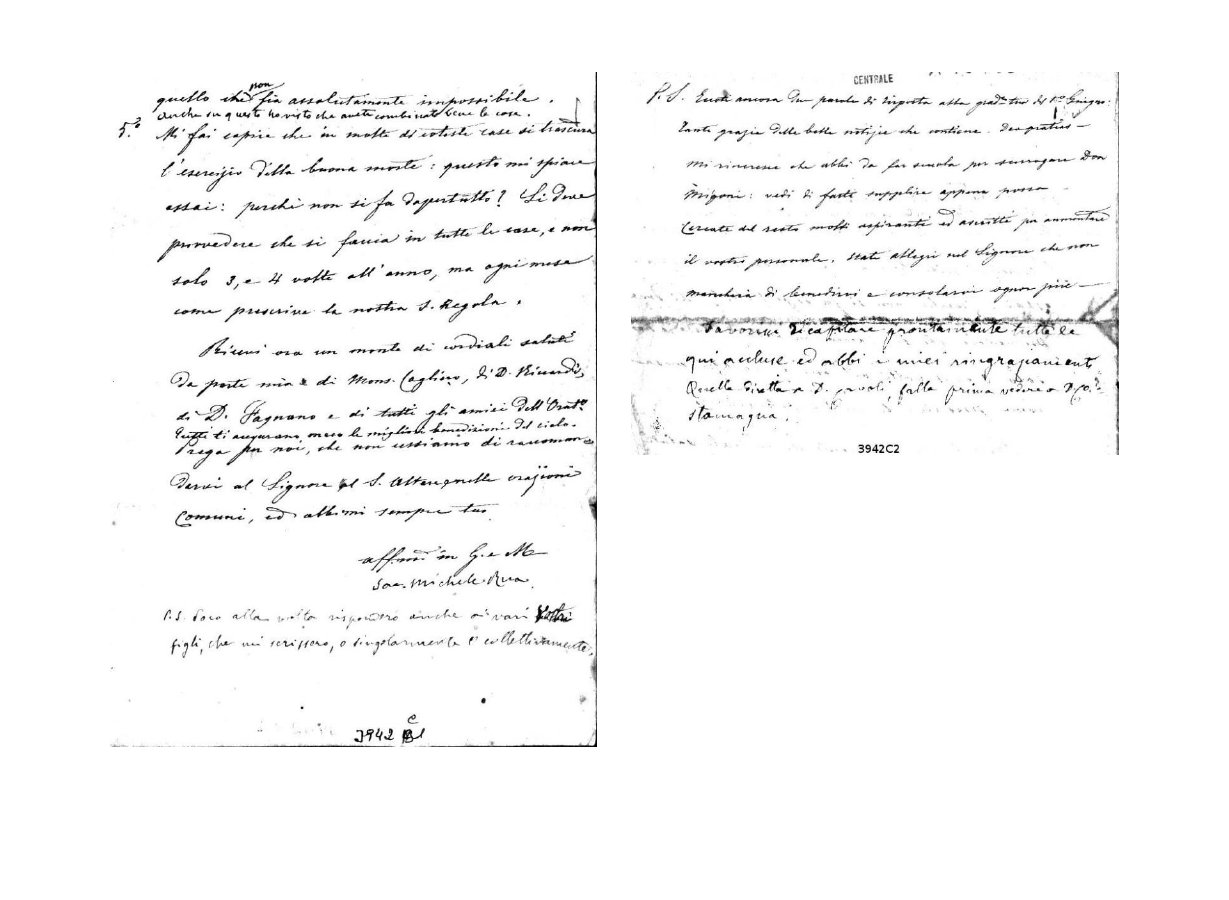 quello che non sia assolutamente impossibile.
Anche su questo ho visto che avete combinato bene le cose.
5.º Mi fai capire che in molte di coteste case si trascura
l'esercizio della buona morte: questo mi spiace
assai: perchè non si fa dapertutto? Si deve
provvedere che si faccia in tutte le case, e non
solo 3, e 4 volte all'anno, ma ogni mese
come prescrive la nostra S. Regola.
Ricevi ora un monte di cordiali saluti
da parte mia e di Mons. Cagliero, di D. Riccardi,
di D. Fagnano e di tutti gli amici dell'Orat.º
Tutti ti augurano meco le migliori benedizioni del cielo.
Prega per noi, che non cessiamo di raccoman=
darvi al Signore al S. Altare, nelle orazioni
comuni, ed abbimi sempre tuo
affmo in G. e M.
Sac. Michele Rua
P.S. Poco alla volta risponderò anche ai vari vostri
figli, che mi scrissero, o singolarmente o collettivamente.
3942 C 1
CENTRALE
P. S. Eccoti ancora una parola di risposta alla grad.ma tua del 1º Giugno:
Tante grazie delle belle notizie che contiene. Deo gratias —
Mi rincresce che abbi da far scuola per surrogare Don
Migoni: vedi di farti supplire appena possa
Cercate del resto molti aspiranti ed ascritti per aumentare
il vostro personale. State allegri nel Signore che non
mancherà di benedirvi e consolarvi ognor più —
Favorisci ricapitare prontamente tutte le
qui accluse ed abbi i miei ringraziamenti
Quella diretta a D. falla prima vedere a D. Co.
Stamagna.
3942C2